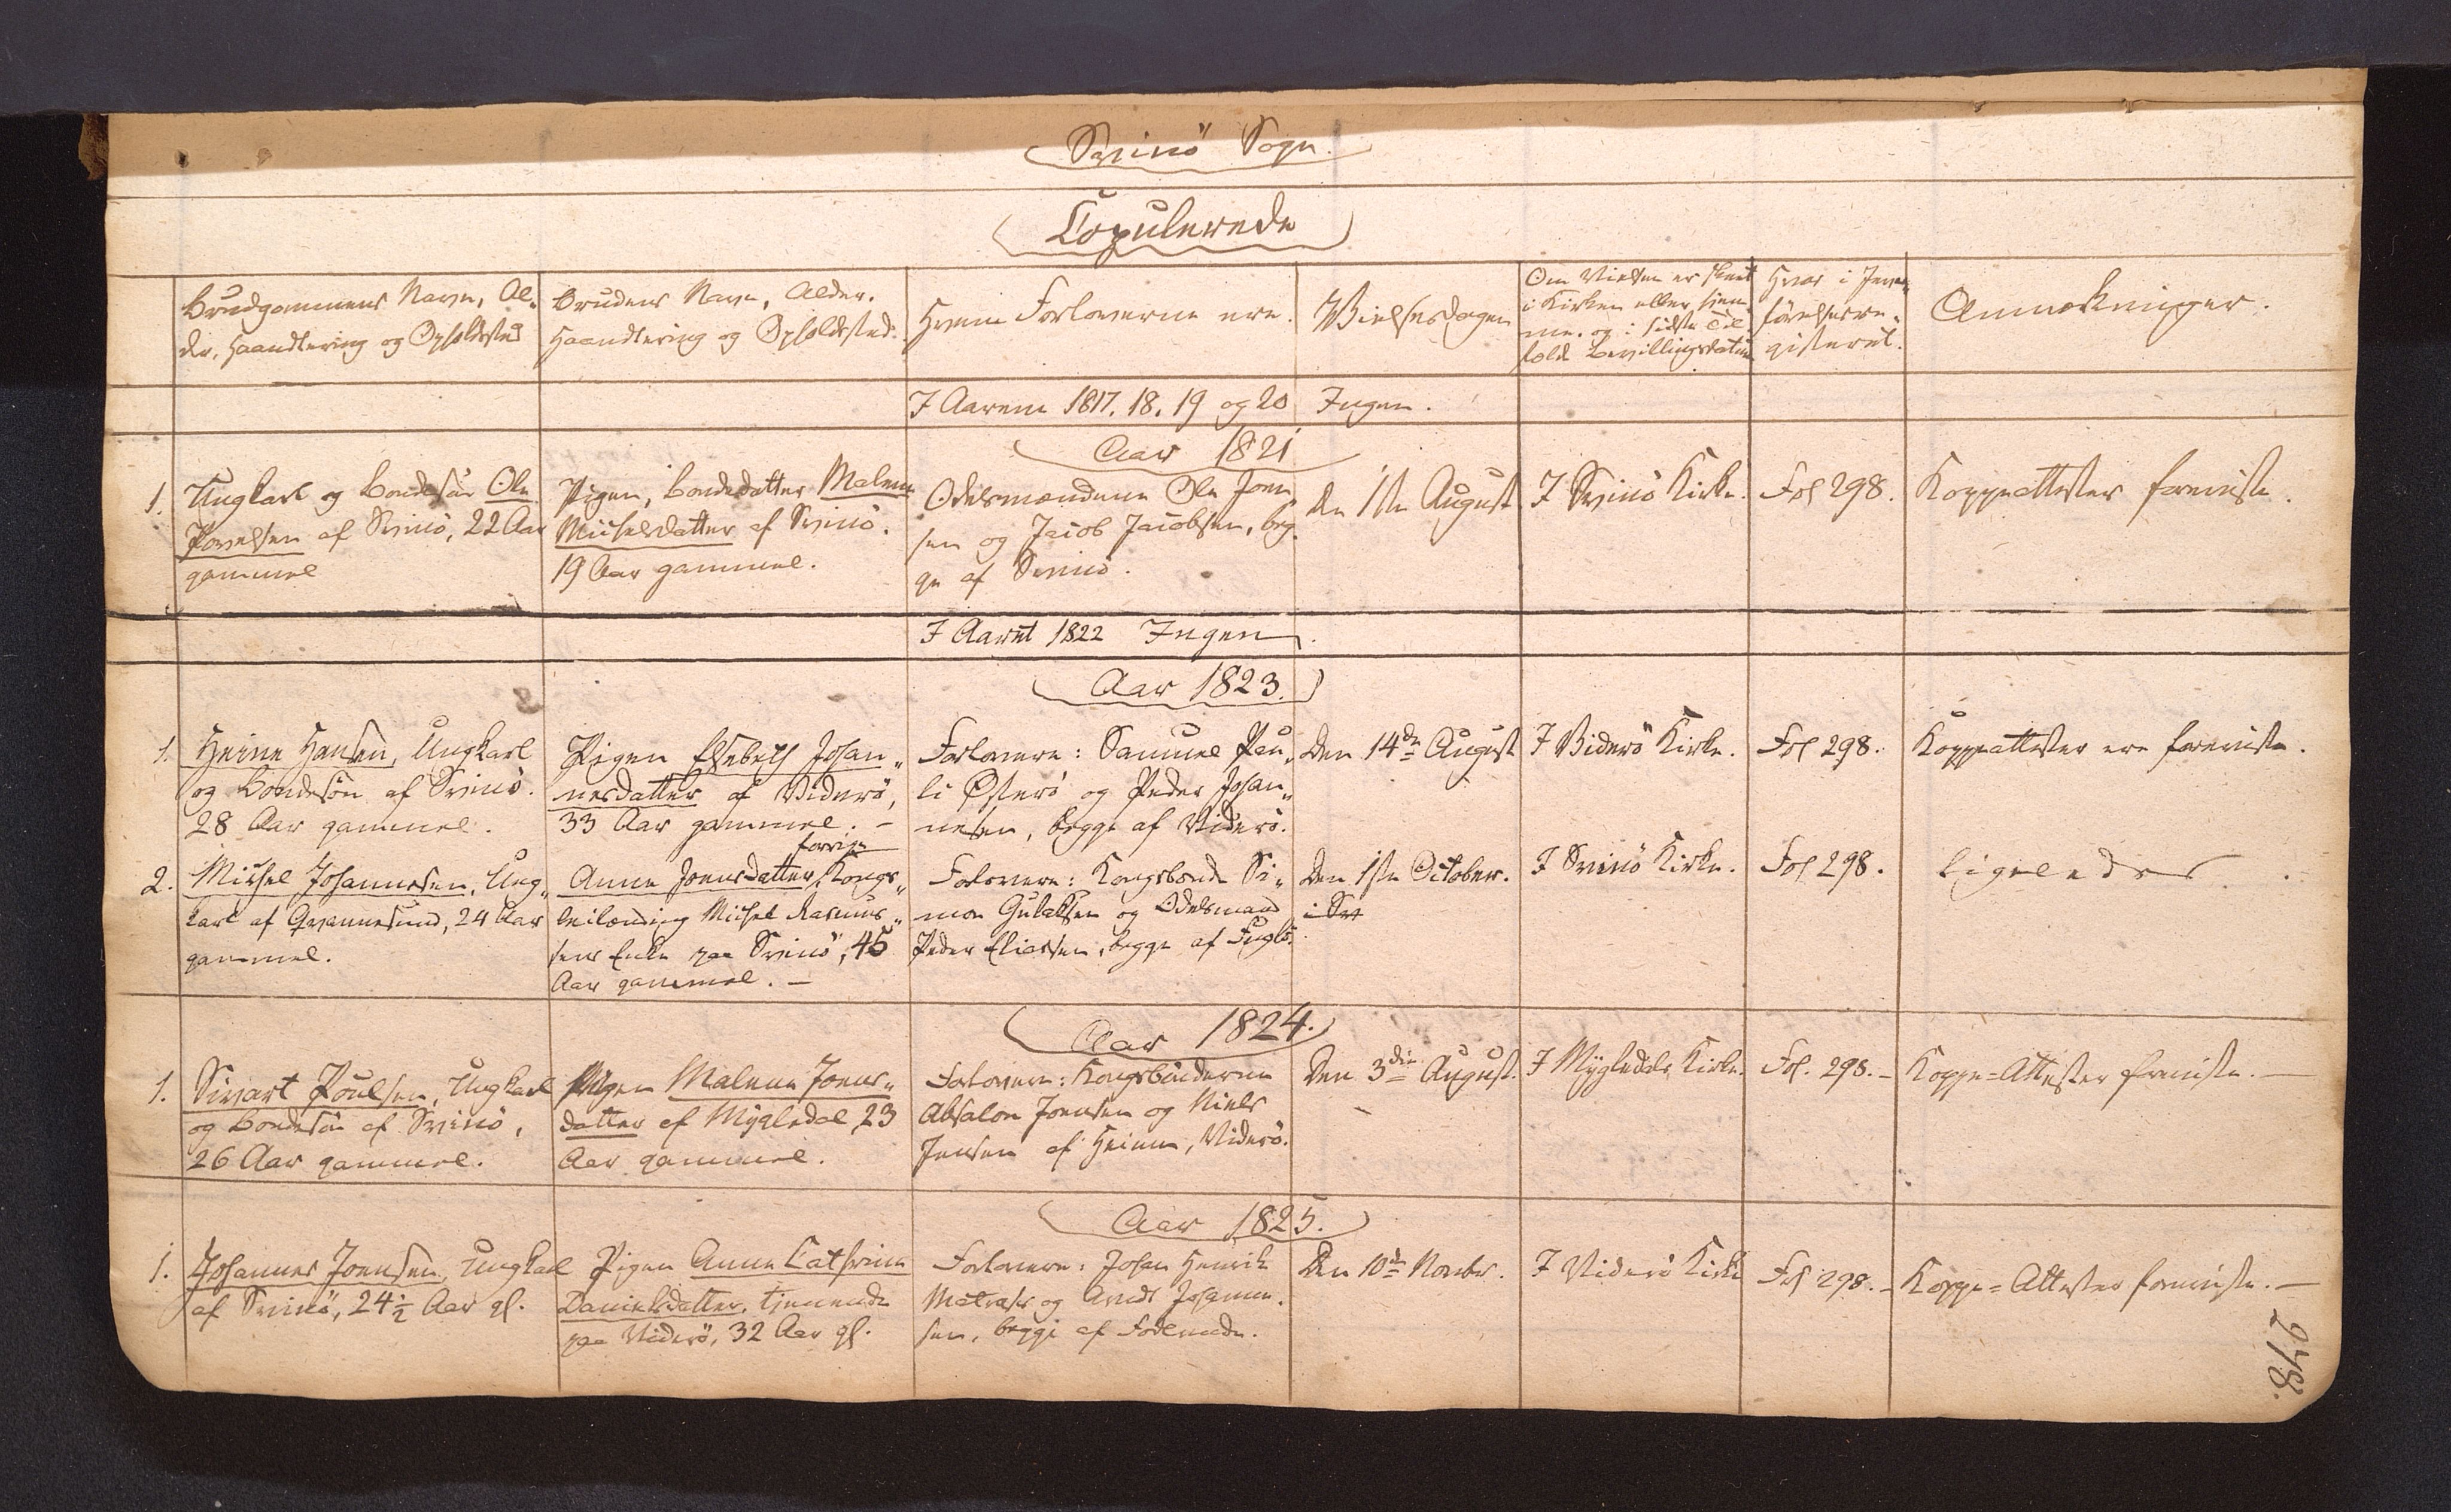 Svinö Sogn.
Copulerede
Brudgommens Navn, Al-
der, Haandtering og Opholdsted
Brudens Navn, Alder,
Haandtering og Opholdsted.
Hvem Forloverne ere.
Vielsesdagen
Om Vielsen er skeet
i Kirken eller hiem-
me, og i sidste Til-
fæld Bevillingsdatum
Hvor i Jevn-
förelsesre-
gisteret.
Anmærkninger.
I Aarene 1817. 18. 19 og 20 Ingen.
Aar 1821
1.
Ungkarl og Bondesön Ole
Povelsen af Svinö, 22 Aar
gammel
Pigen, Bondedatter Malene
Michelsdatter af Svinö.
19 Aar gammel.
Odelsmændene Ole Joen-
sen og Jacob Jacobsen, beg-
ge af Svinö.
den 1ste August
I Svinö Kirke.
Fol 298.
Koppeattester foreviste.
I Aaret 1822 Ingen.
Aar 1823.
1.
Heine Hansen, Ungkarl
og Bondesön af Svinö.
28 Aar gammel.
Pigen Elsebeth Johan-
nesdatter af Viderö,
33 Aar gammel. -
Forlovere: Samuel Pau-
li Østerö og Peder Johan-
nesen, begge af Viderö.
Den 14de August
I Viderö Kirke.
Fol 298.
Koppeattester ere foreviste.
2.
Michel Johannesen, Ung-
karl af Qvannesund, 24 Aar
gammel.
forrige
Anne Joensdatter, Kongs-
leilænding Michel Rasmus-
sens Enke paa Svinö, 45
Aar gammel. -
Forlovere: Kongsbonde Si-
mon Gulaksen og Odelsmand
Peder Eliassen, begge af Fuglö.
Den 1ste October.
i Sv
I Svinö Kirke.
Fol 298.
Ligeledes
Aar 1824.
1.
Sivart Poulsen, Ungkarl
og Bondesön af Svinö,
26 Aar gammel.
Pigen Malene Joens-
datter af Mygledal, 23
Aar gammel.
Forlovere: Kongsbönderne
Absalon Joensen og Niels
Jensen af Heimme, Viderö.
Den 3die August.
I Mygledals Kirke.
Fol. 298. -
Koppe=Attester foreviste. -
Aar 1825.
1.
Johannes Joensen, Ungkarl
af Svinö, 24½ Aar gl.
Pigen Anne Cathrine
Danielsdatter, tjenende
paa Viderö, 32 Aar gl.
Forlovere: Johan Henrik
Matras og Arndt Johanne-
sen, begge af
Den 10de Novbr.
I Viderö Kirke
Fol 298. -
Koppe=Attester foreviste. -
278.